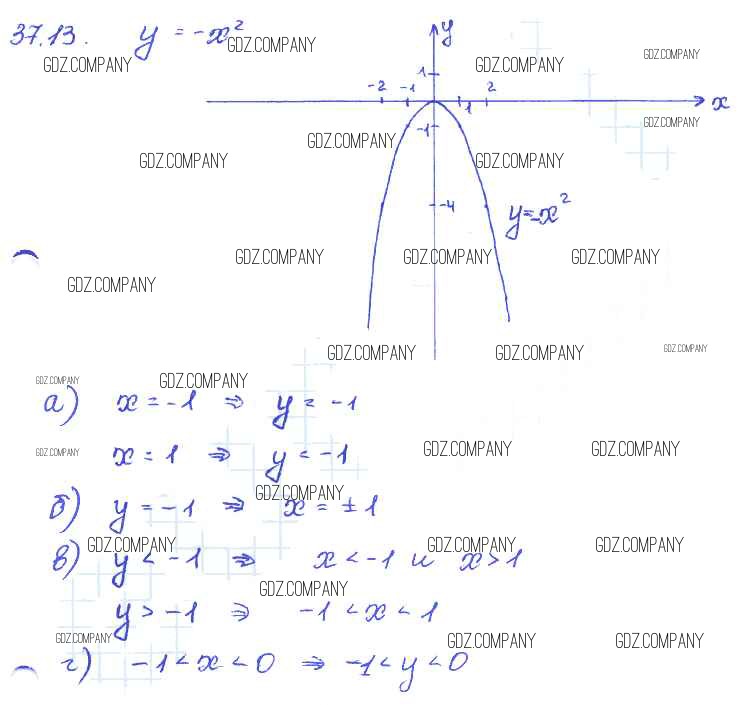 37.13. y = -x²
GDZ.COMPANY
y
GDZ.COMPANY GDZ.COMPANY GDZ.COMPANY
1
-2 -1 1 2 x
-1
GDZ.COMPANY
GDZ.COMPANY GDZ.COMPANY GDZ.COMPANY
-4
y=-x²
GDZ.COMPANY GDZ.COMPANY GDZ.COMPANY
GDZ.COMPANY
GDZ.COMPANY GDZ.COMPANY GDZ.COMPANY
GDZ.COMPANY GDZ.COMPANY
а) x = -1 ⇒ y = -1
GDZ.COMPANY GDZ.COMPANY GDZ.COMPANY
x = 1 ⇒ y < -1
GDZ.COMPANY
б) y = -1 ⇒ x = ±1
GDZ.COMPANY GDZ.COMPANY GDZ.COMPANY
в) y < -1 ⇒ x < -1 и x > 1
GDZ.COMPANY
y > -1 ⇒ -1 < x < 1
GDZ.COMPANY GDZ.COMPANY GDZ.COMPANY
г) -1 < x < 0 ⇒ -1 < y < 0